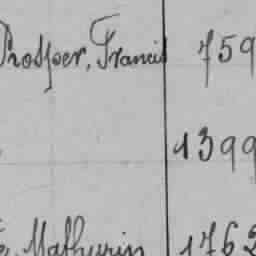 Prosper, Francis 759
1399
Mathurin 1762